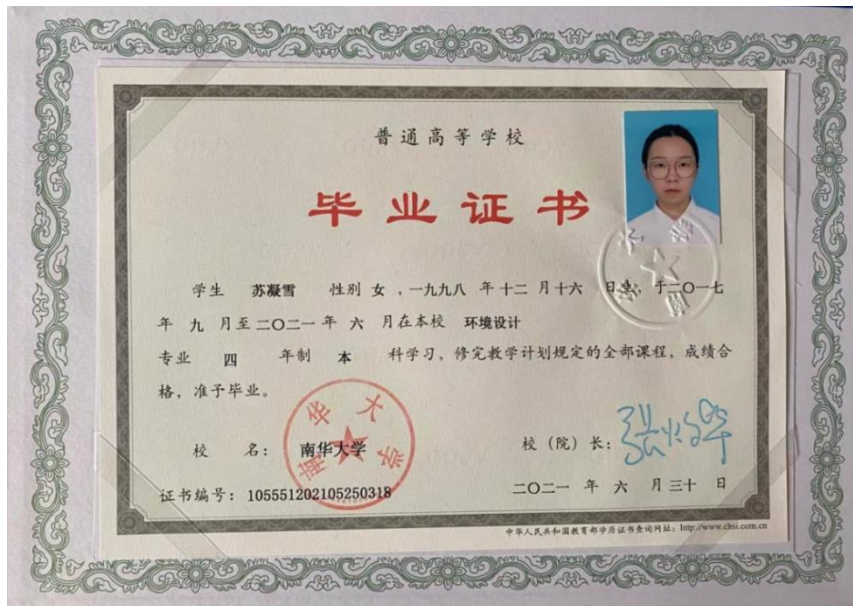 普通高等学校
毕业证书
学生 苏凝雪 性别 女 ，一九九八 年 十二 月 十六 日生，于二〇一七
年 九 月至 二〇二一 年 六 月在本校 环境设计
专业 四 年制 本 科学习，修完教学计划规定的全部课程，成绩合
格，准予毕业。
校 名： 南华大学
校（院）长：
南华大学
证书编号：105551202105250318
二〇二一 年 六 月 三十 日
中华人民共和国教育部学历证书查询网址：http://www.chsi.com.cn